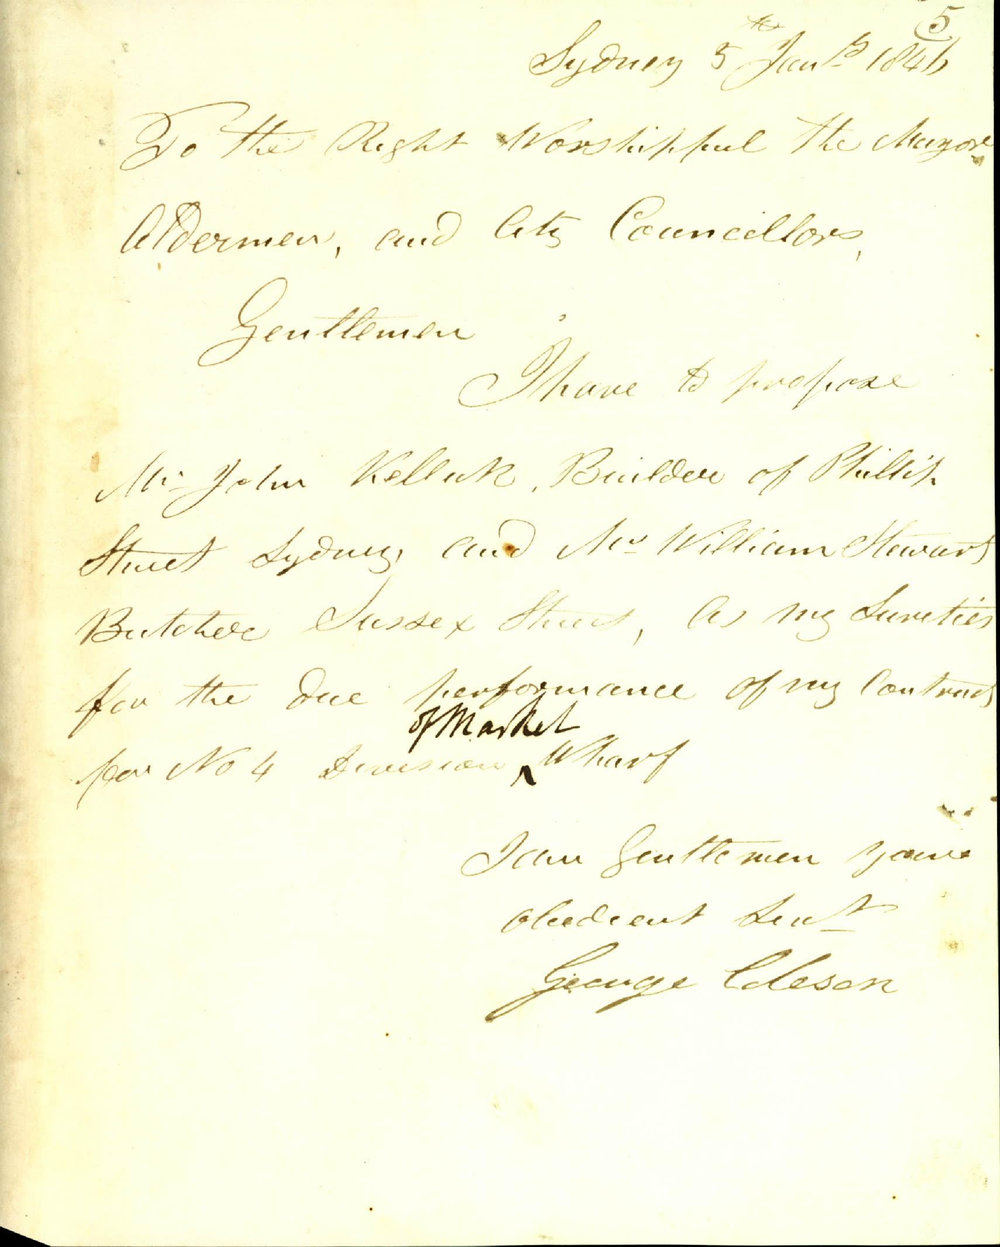 5
Sydney 5th Jany 1846
To the Right Worshipful the Mayor
Aldermen, and City Councillors,
Gentlemen
I have to propose
Mr John Kellick, Builder of Phillip
Street Sydney, and Mr William Stewart
Butcher Sussex Street, as my Sureties
for the due performance of my Contract
for No 4 Division ^ of Market Wharf
I am Gentlemen your
obedient Servt
George